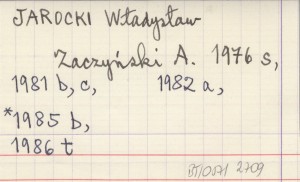 JAROCKI Władysław
Zaczyński A. 1976 s,
1981 b, c, 1982 a,
*1985 b,
1986 t
2709